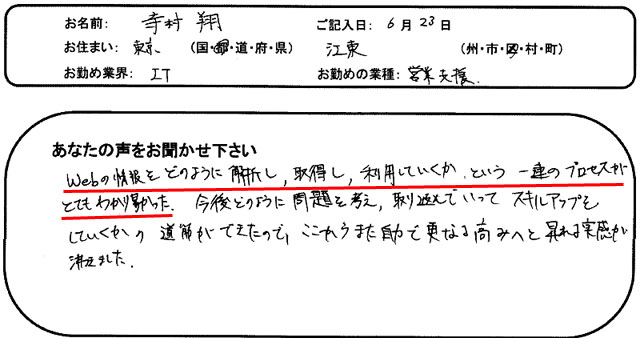 お名前: 寺村 翔 ご記入日: 6月23日
お住まい: 東京 (国・都・道・府・県) 江東 (州・市・区・村・町)
お勤め業界: IT お勤めの業種: 営業支援.
あなたの声をお聞かせ下さい
Webの情報をどのように解析し、取得し、利用していくか、という一連のプロセスが
とてもわかり易かった. 今後どのように問題を考え、取り組んでいってスキルアップを
していくかの道筋ができたので、ここからまた自分で更なる高みへと昇れる実感が
沸えました.